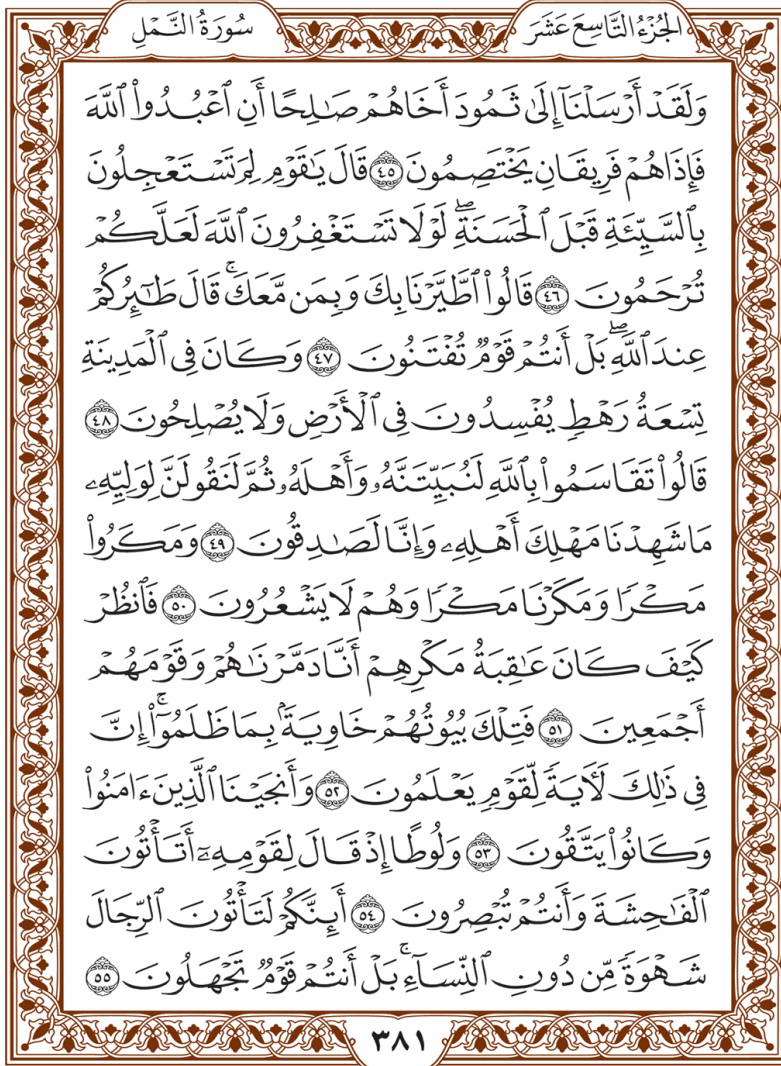 الجُزْءُ التَّاسِعَ عَشَرَ
سُورَةُ النَّمْلِ
وَلَقَدْ أَرْسَلْنَآ إِلَىٰ ثَمُودَ أَخَاهُمْ صَٰلِحًا أَنِ ٱعْبُدُوا۟ ٱللَّهَ
فَإِذَا هُمْ فَرِيقَانِ يَخْتَصِمُونَ ٤٥ قَالَ يَٰقَوْمِ لِمَ تَسْتَعْجِلُونَ
بِٱلسَّيِّئَةِ قَبْلَ ٱلْحَسَنَةِ ۖ لَوْلَا تَسْتَغْفِرُونَ ٱللَّهَ لَعَلَّكُمْ
تُرْحَمُونَ ٤٦ قَالُوا۟ ٱطَّيَّرْنَا بِكَ وَبِمَن مَّعَكَ ۚ قَالَ طَٰٓئِرُكُمْ
عِندَ ٱللَّهِ ۖ بَلْ أَنتُمْ قَوْمٌ تُفْتَنُونَ ٤٧ وَكَانَ فِى ٱلْمَدِينَةِ
تِسْعَةُ رَهْطٍ يُفْسِدُونَ فِى ٱلْأَرْضِ وَلَا يُصْلِحُونَ ٤٨
قَالُوا۟ تَقَاسَمُوا۟ بِٱللَّهِ لَنُبَيِّتَنَّهُۥ وَأَهْلَهُۥ ثُمَّ لَنَقُولَنَّ لِوَلِيِّهِۦ
مَا شَهِدْنَا مَهْلِكَ أَهْلِهِۦ وَإِنَّا لَصَٰدِقُونَ ٤٩ وَمَكَرُوا۟
مَكْرًا وَمَكَرْنَا مَكْرًا وَهُمْ لَا يَشْعُرُونَ ٥٠ فَٱنظُرْ
كَيْفَ كَانَ عَٰقِبَةُ مَكْرِهِمْ أَنَّا دَمَّرْنَٰهُمْ وَقَوْمَهُمْ
أَجْمَعِينَ ٥١ فَتِلْكَ بُيُوتُهُمْ خَاوِيَةًۢ بِمَا ظَلَمُوٓا۟ ۚ إِنَّ
فِى ذَٰلِكَ لَءَايَةً لِّقَوْمٍ يَعْلَمُونَ ٥٢ وَأَنجَيْنَا ٱلَّذِينَ ءَامَنُوا۟
وَكَانُوا۟ يَتَّقُونَ ٥٣ وَلُوطًا إِذْ قَالَ لِقَوْمِهِۦٓ أَتَأْتُونَ
ٱلْفَٰحِشَةَ وَأَنتُمْ تُبْصِرُونَ ٥٤ أَئِنَّكُمْ لَتَأْتُونَ ٱلرِّجَالَ
شَهْوَةً مِّن دُونِ ٱلنِّسَآءِ ۚ بَلْ أَنتُمْ قَوْمٌ تَجْهَلُونَ ٥٥
٣٨١